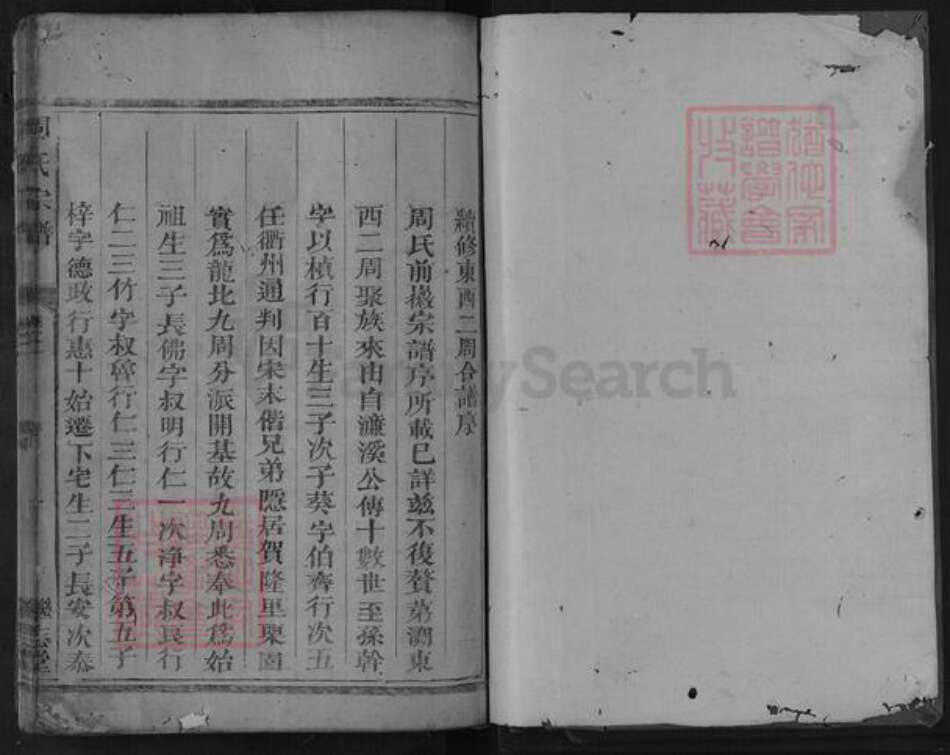 續修東西二周合譜序
周氏前撥宗譜序所載已詳茲不復贅第溯東
西二周聚族來由自濂溪公傳十數世至孫幹
字以楨行百十生三子次子葵字伯齊行次五
任衢州通判因宋末偕兄弟隱居賀隆里栗園
實爲龍北九周分派開基故九周悉奉此爲始
祖生三子長佛字叔明行仁一次淨字叔良行
仁二三竹字叔行仁三仁三生五子第五子
梓字德政行惠十始遷下宅生二子長安次泰
周氏宗譜
FamilySearch
譜學會
收藏